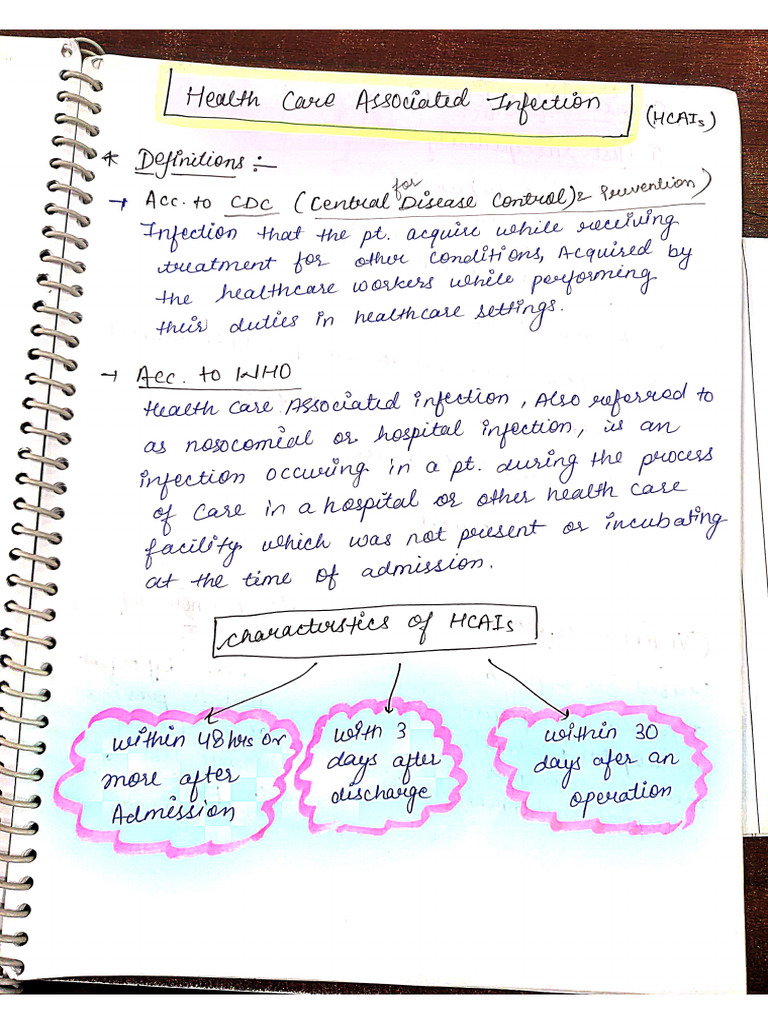 Health Care Associated Infection (HCAIs)
* Definitions :-
→ Acc. to CDC (Central for Disease Control) & Prevention)
Infection that the pt. acquire while receiving
treatment for other conditions, Acquired by
the healthcare workers while performing
their duties in healthcare settings.
→ Acc. to WHO
Health Care Associated infection, Also referred to
as nosocomial or hospital infection, is an
infection occuring in a pt. during the process
of care in a hospital or other health care
facility which was not present or incubating
at the time of admission.
Characterstics of HCAIs
within 48 hrs or
more after
Admission
with 3
days after
discharge
within 30
days afer an
operation